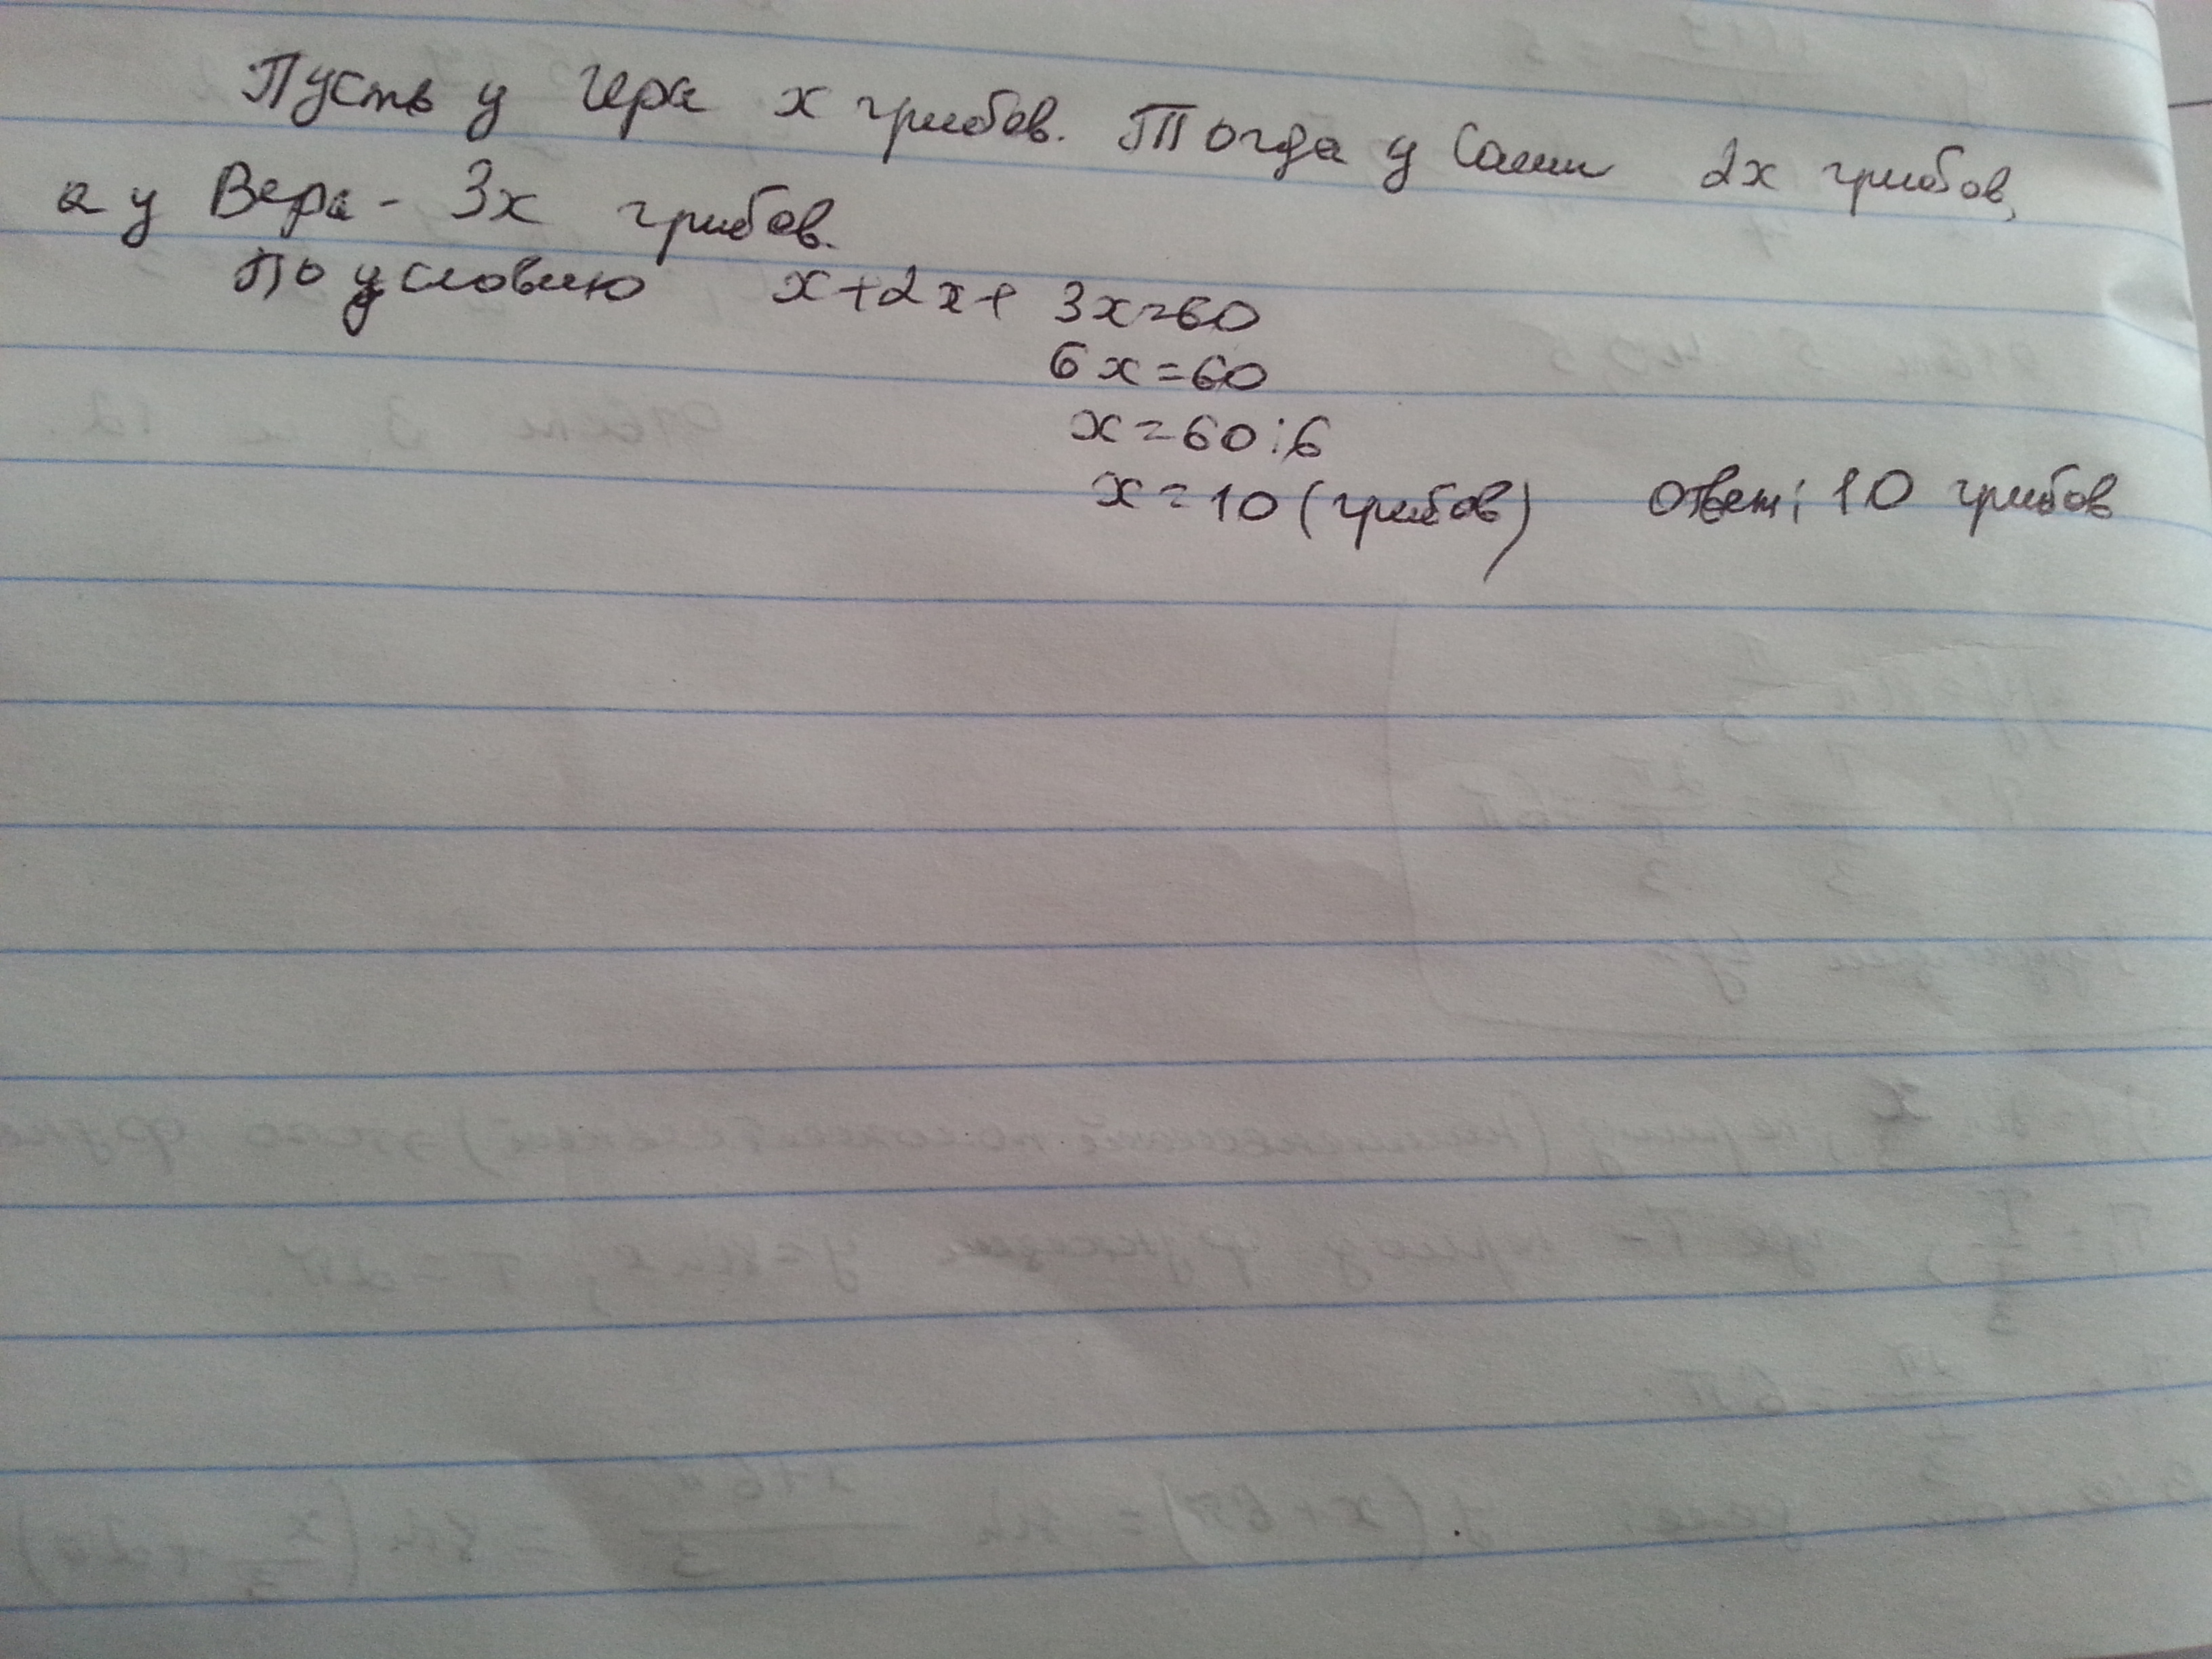 Пусть у Иера x грибов. Тогда у Саши 2x грибов,
а у Вера - 3x грибов.
По условию x+2x+ 3x=60
6x=60
x=60:6
x=10 (грибов) Ответ: 10 грибов